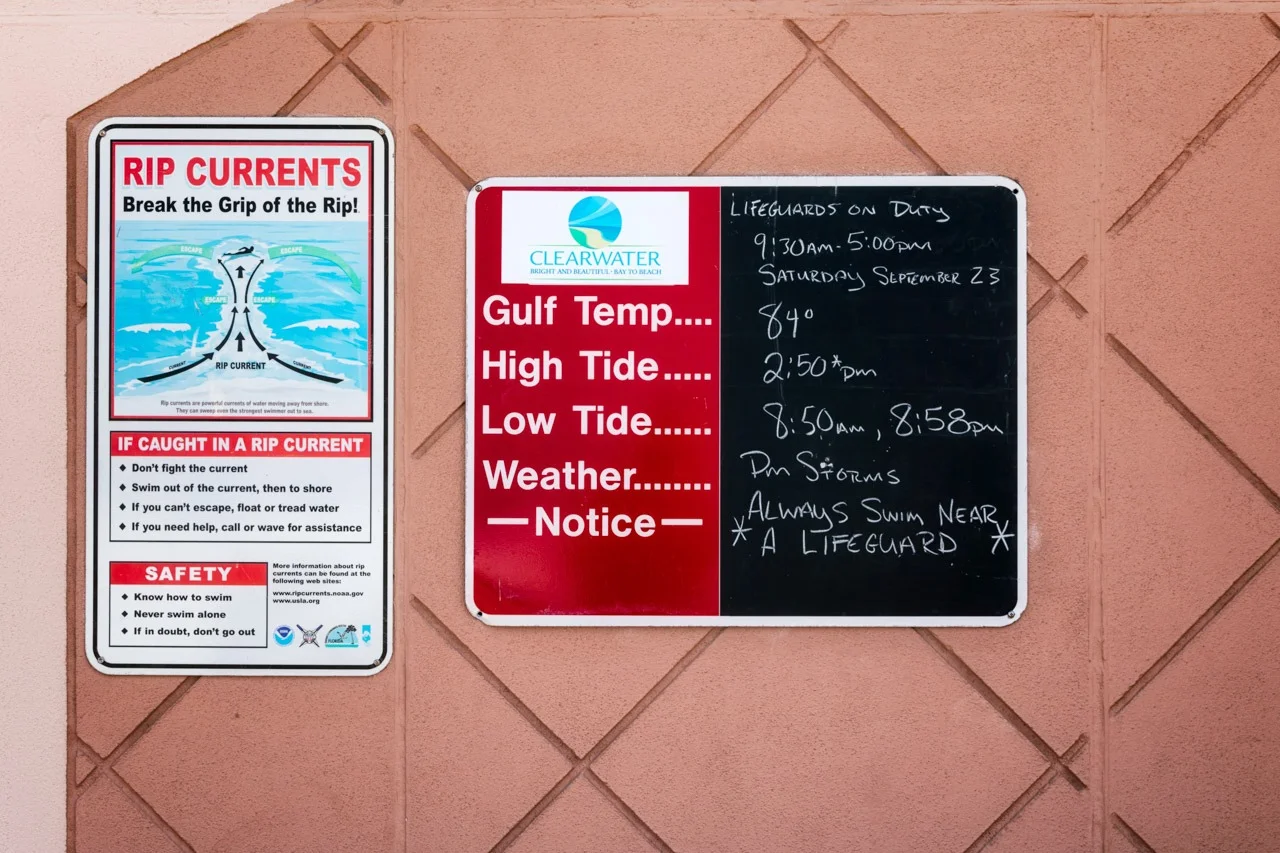 RIP CURRENTS
Break the Grip of the Rip!
ESCAPE ESCAPE
ESCAPE ESCAPE
CURRENT RIP CURRENT CURRENT
Rip currents are powerful currents of water moving away from shore.
They can sweep even the strongest swimmer out to sea.
IF CAUGHT IN A RIP CURRENT
♦ Don't fight the current
♦ Swim out of the current, then to shore
♦ If you can't escape, float or tread water
♦ If you need help, call or wave for assistance
SAFETY
♦ Know how to swim
♦ Never swim alone
♦ If in doubt, don't go out
More information about rip
currents can be found at the
following web sites:
www.ripcurrents.noaa.gov
www.usla.org
FLORIDA
CLEARWATER
BRIGHT AND BEAUTIFUL · BAY TO BEACH
LIFEGUARDS ON DUTY
9:30AM - 5:00PM
SATURDAY SEPTEMBER 23
Gulf Temp.... 84°
High Tide..... 2:50*pm
Low Tide...... 8:50AM, 8:58pm
Weather........ PM STORMS
—Notice— ALWAYS SWIM NEAR
* A LIFEGUARD *